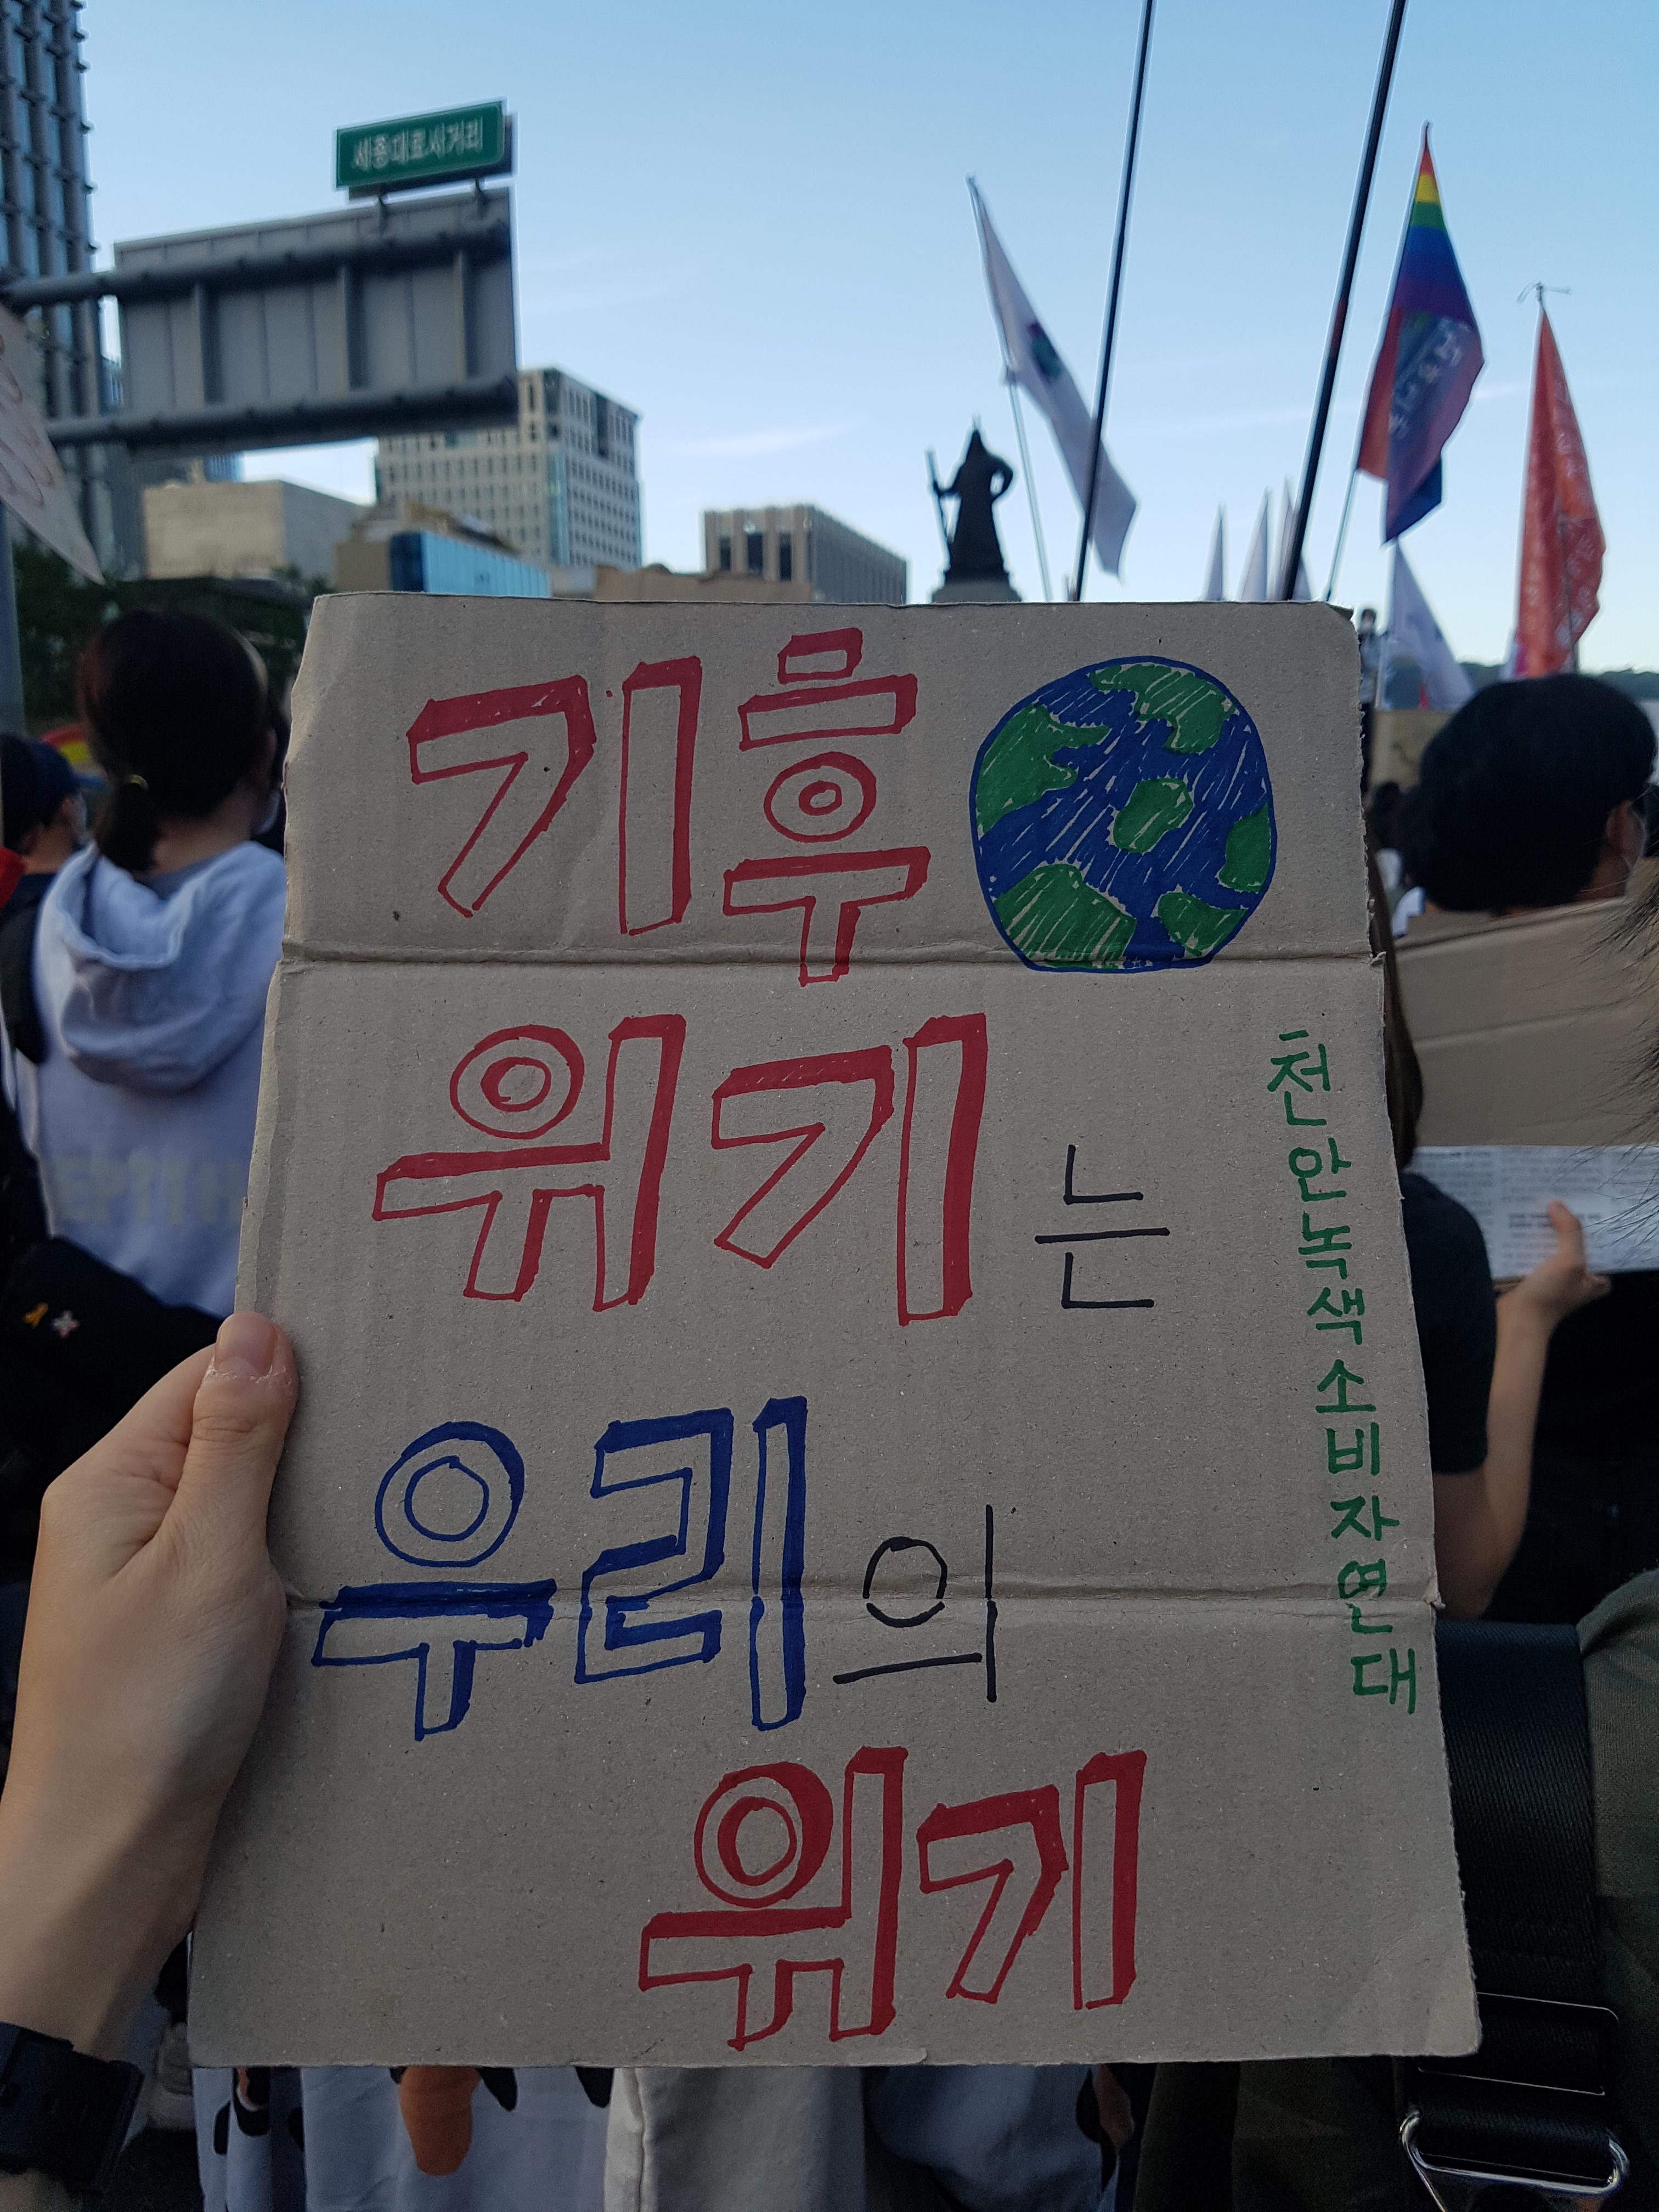 세종대로사거리
기후
위기는
우리의
위기
천안녹색소비자연대